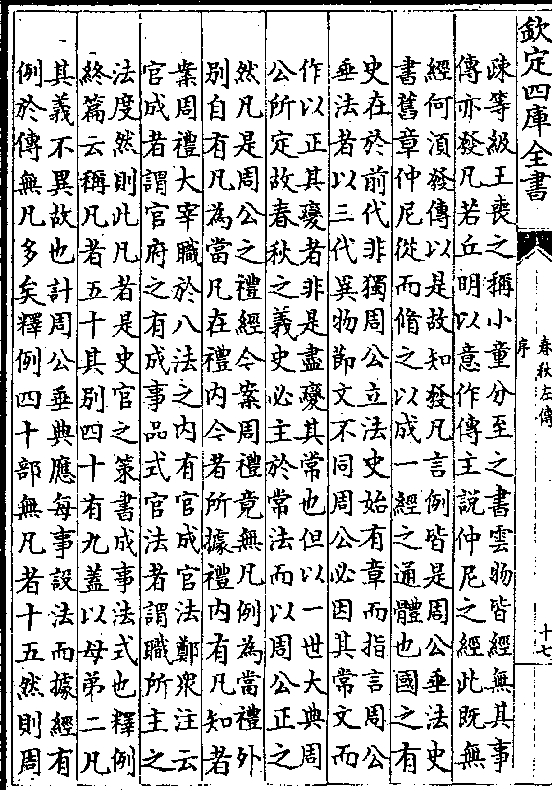 欽定四庫全書
春秋左傳
序
十七
疎等級王喪之稱小童分至之書雲物皆經無其事
傳亦發凡若丘明以意作傳主說仲尼之經此既無
經何湏發傳以是故知發凡言例皆是周公垂法史
書舊章仲尼從而脩之以成一經之通體也國之有
史在於前代非獨周公立法史始有章而指言周公
垂法者以三代異物節文不同周公必因其常文而
作以正其變者非是盡變其常也但以一世大典周
公所定故春秋之義史必主於常法而以周公正之
然凡是周公之禮經今案周禮竟無凡例為當禮外
別自有凡為當凡在禮內今者所據禮內有凡知者
案周禮大宰職於八法之內有官成官法鄭衆注云
官成者謂官府之有成事品式官法者謂職所主之
法度然則此凡者是史官之策書成事法式也釋例
終篇云稱凡者五十其別四十有九蓋以母弟二凡
其義不異故也計周公垂典應每事設法而據經有
例於傳無凡多矣釋例四十部無凡者十五然則周